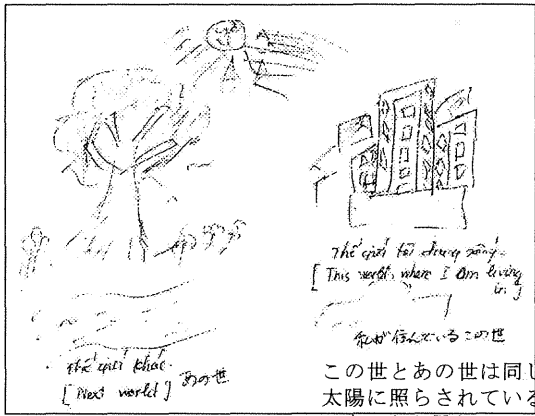 Thế giới tôi đang sống.
[ This world, where I am living
in ]
私が住んでいるこの世
Thế giới khác.
[ Next world ] あの世
この世とあの世は同じ
太陽に照らされている